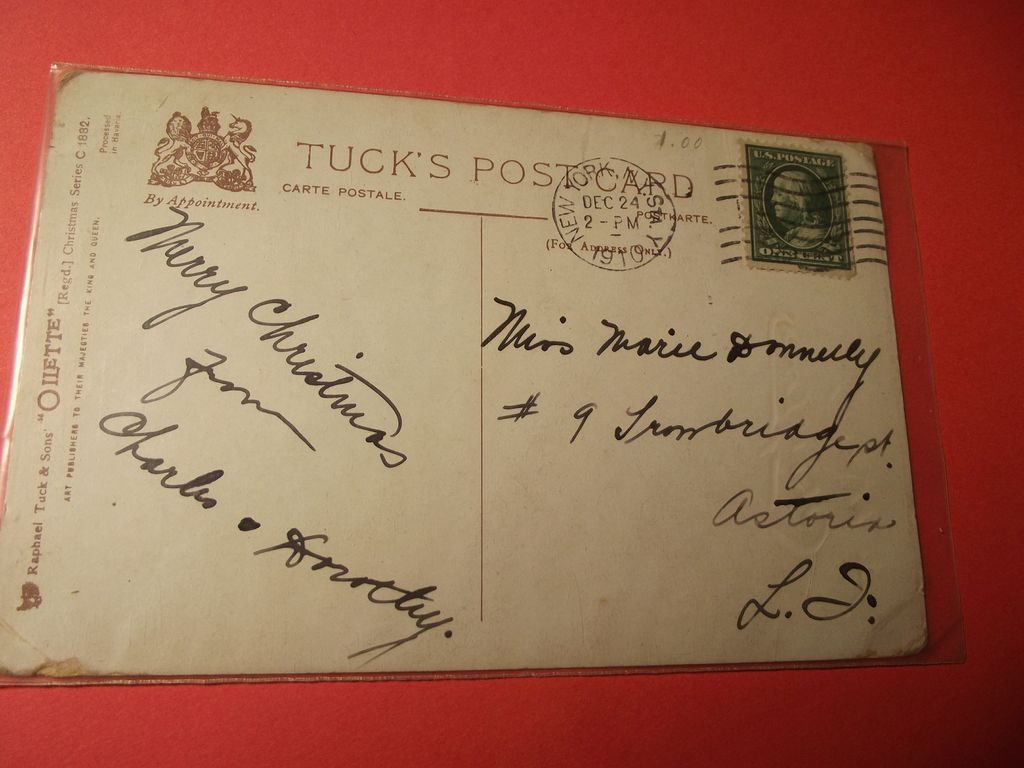 1.00
By Appointment.
TUCK'S POST CARD
CARTE POSTALE.
POSTKARTE.
(FOR ADDRESS ONLY.)
NEW YORK, N.Y. STA. Y
DEC 24
2-PM
1910
U.S. POSTAGE
ONE CENT
Raphael Tuck & Sons' "OILETTE" [Regd.] Christmas Series C 1882.
ART PUBLISHERS TO THEIR MAJESTIES THE KING AND QUEEN.
Processed
in Bavaria.
Merry Christmas
from
Charles & Dorothy.
Miss Marie Donnelly
# 9 Trowbridge st.
Astoria
L. I.